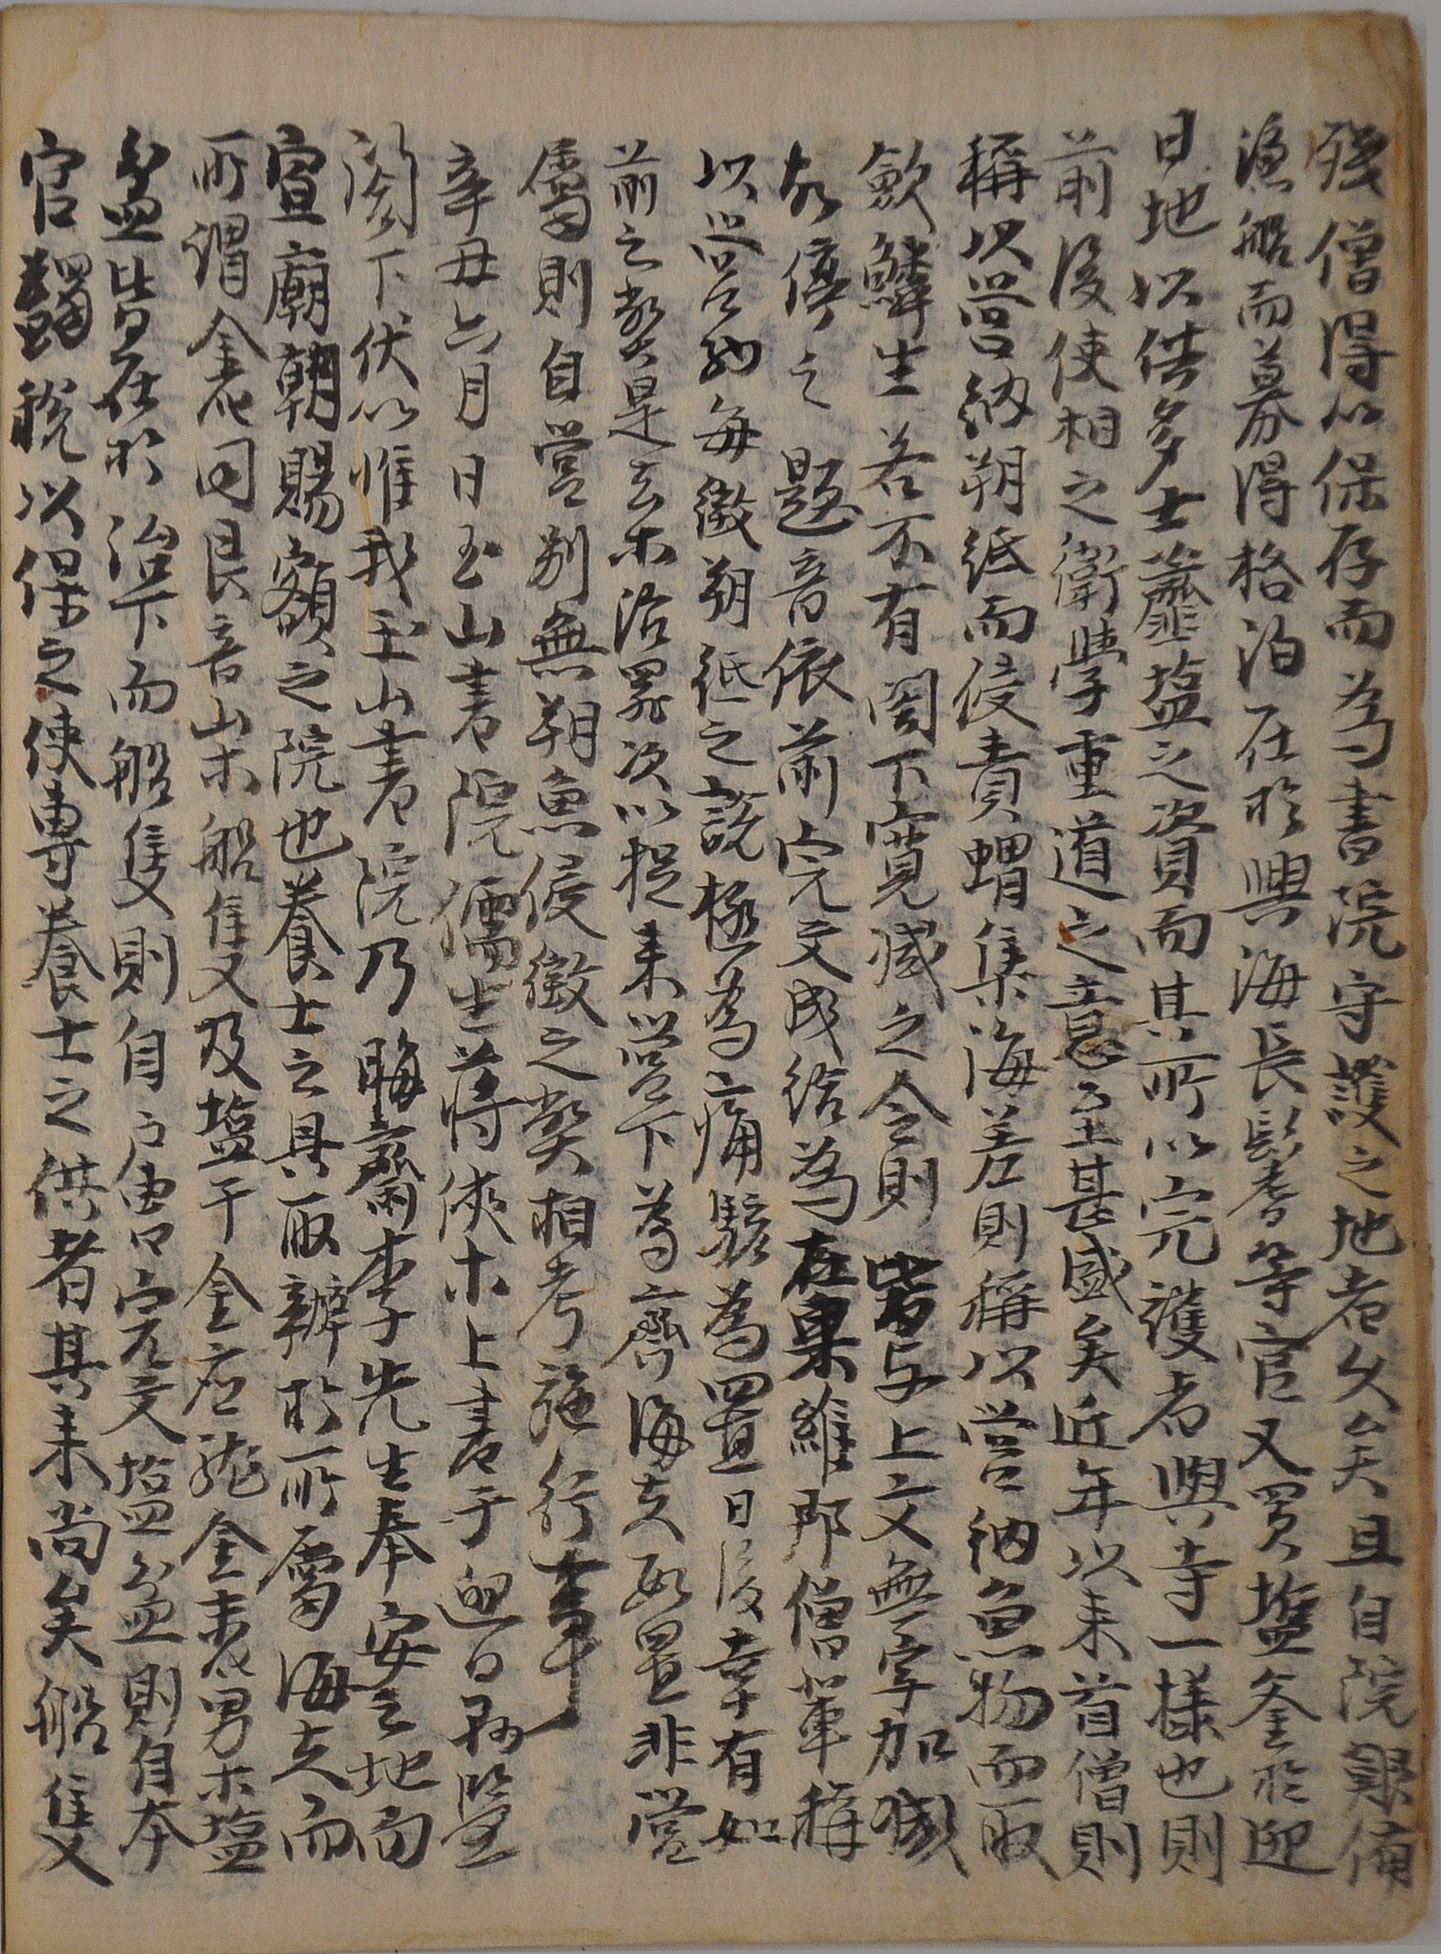 殘僧得以保存而爲書院守護之地者久矣且自院艱備
漁船而募得格泊在於興海長鬐等官又買塩釜於迎
日地以供多士虀塩之資而其所以完護者與寺一樣也則
前後使相之衛學重道之意至甚盛矣近年以来首僧則
稱以營納朔紙而侵責蝟集海差則稱以營納魚物而取
歛鱗生若不有閤下寬减之令則 皆与上文無一字加减
故停之 題音依前完文成給爲在果維那僧軰稱
以營納每徵朔紙之說極爲痛駭爲置日後幸有如
前之弊是去ホ治罪次以捉来營下爲齊海夫段置非營
屬則自營别無朔魚侵徵之弊相考施行事
辛丑六月日玉山書院儒生蔣俠ホ上書于迎日縣監
閤下伏以惟我玉山書院乃 晦齋李先生奉安之地而
宣廟朝賜額之院也養士之具取辦於所屬海夫而
所謂金老同良音山ホ船隻及塩干金应龍金老男ホ塩
盆皆在於 治下而船隻則自戶曹完文塩盆則自本
官蠲稅以保之使專養士之供者其来尚矣船隻